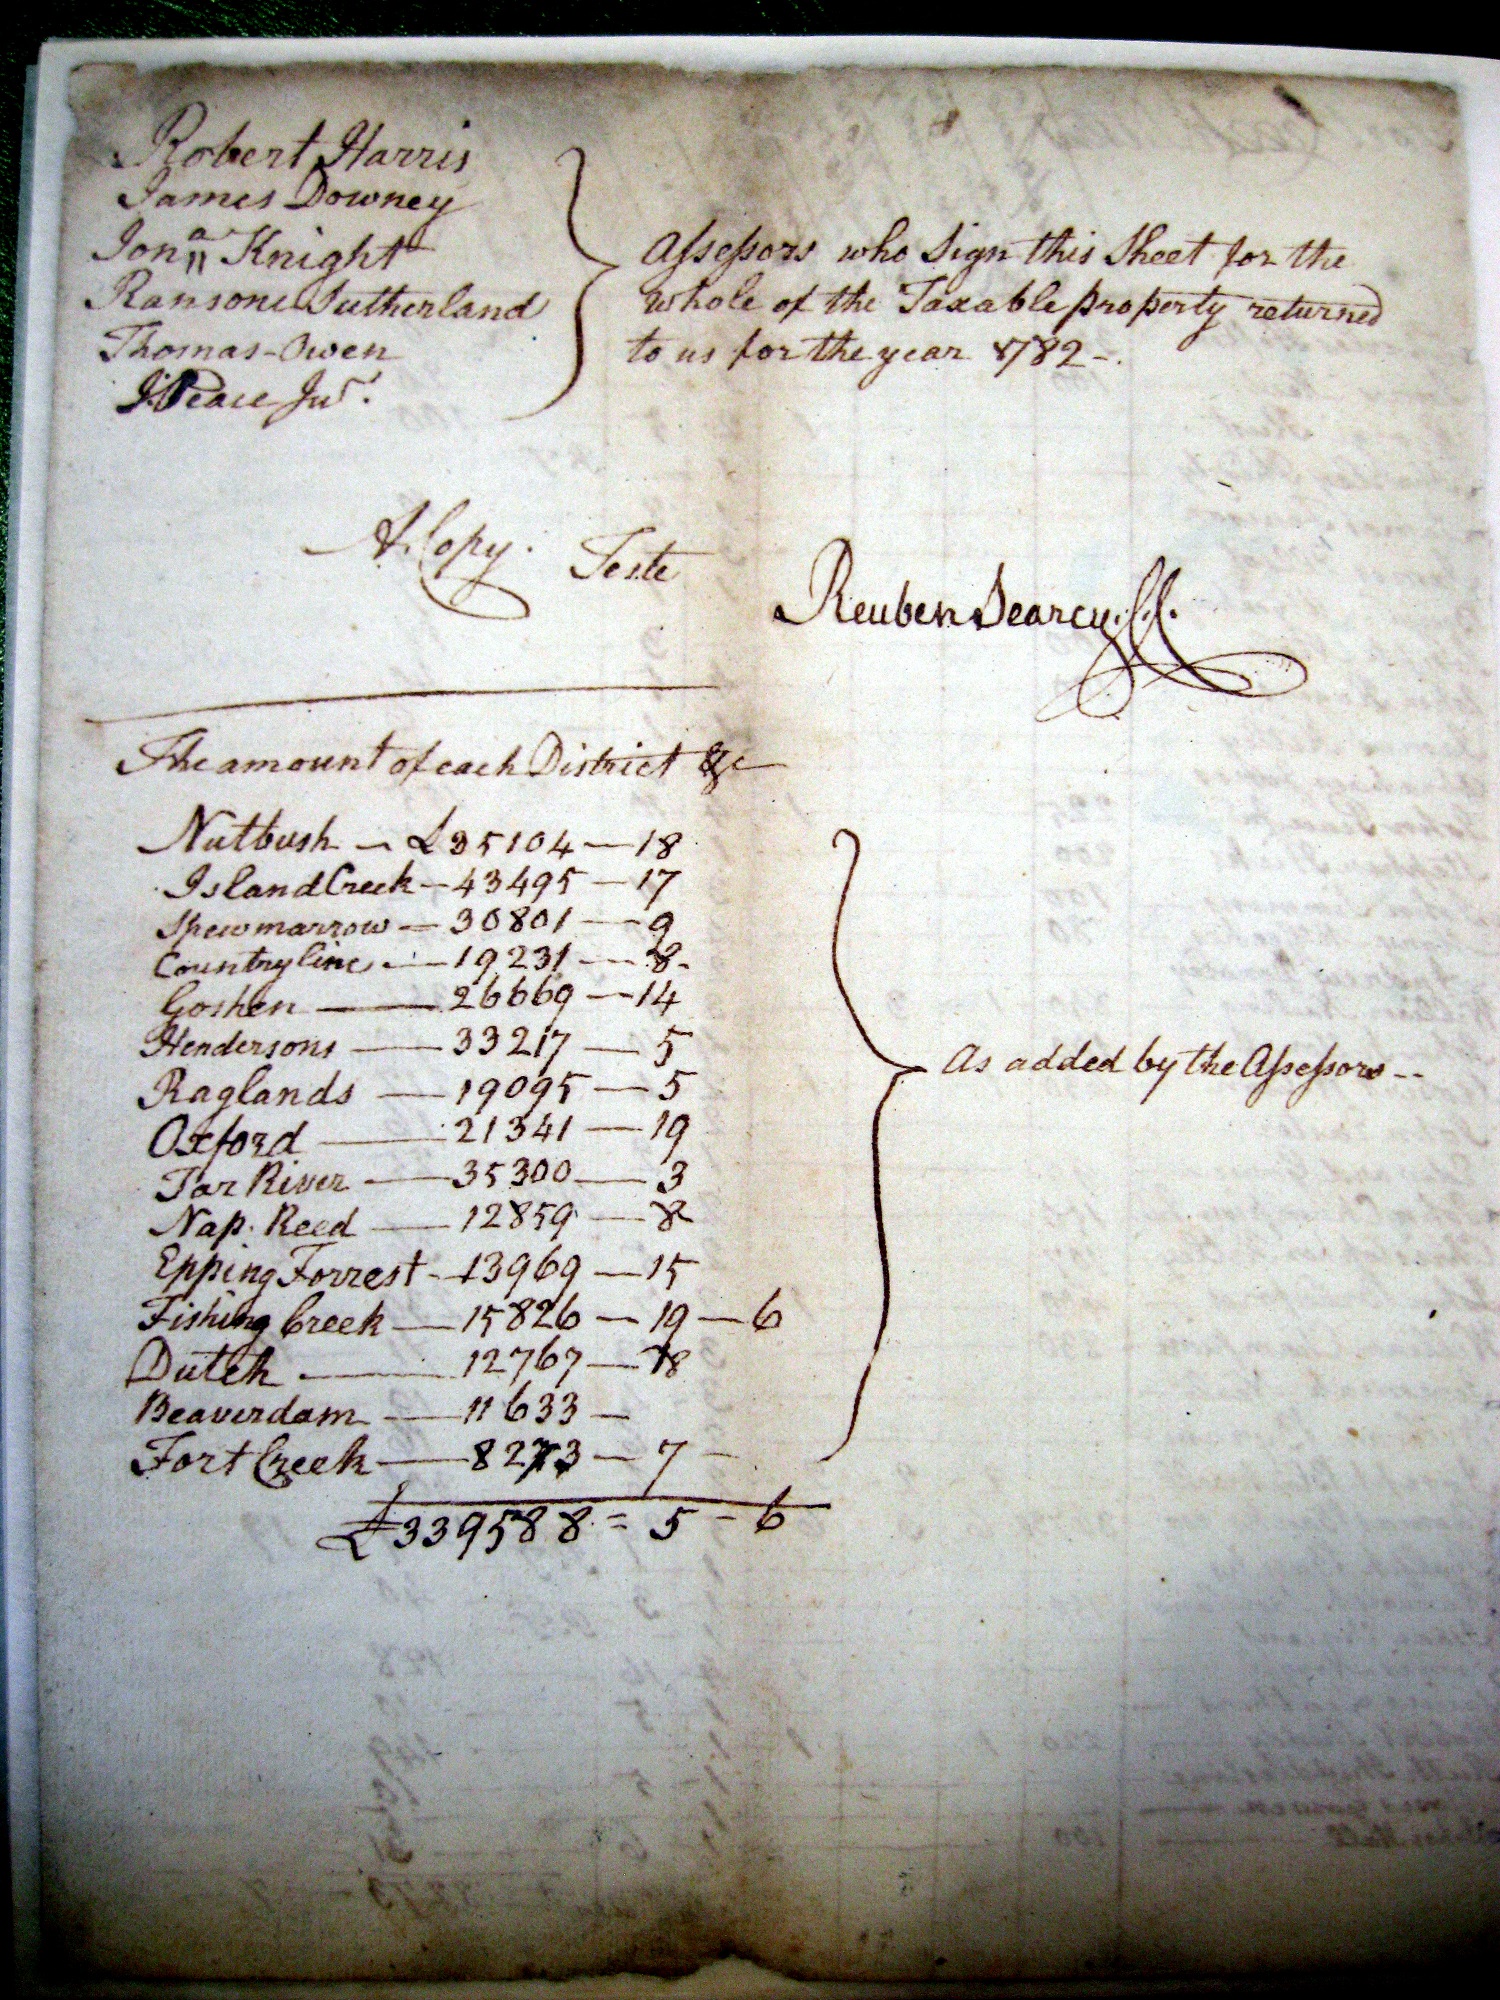 Robert Harris
James Downey
Jonᵃ Knight
Ransome Sutherland
Thomas Owen
J Peace Junʳ.
Assessors who Sign this Sheet for the
whole of the Taxable property returned
to us for the year 1782 -.
A Copy. Teste
Reuben Searcy. C.C.
The amount of each District &c
Nutbush — £35104 — 18
Island Creek — 43495 — 17
Spewmarrow — 30801 — 9
Countryline — 19231 — 8
Goshen — 26669 — 14
Hendersons — 33217 — 5
Raglands — 19095 — 5
Oxford — 21341 — 19
Tar River — 35300 — 3
Nap. Reed — 12859 — 8
Epping Forrest — 13969 — 15
Fishing Creek — 15826 — 19 — 6
Dutch — 12767 — 18
Beaverdam — 11633 —
Fort Creek — 8273 — 7 —
As added by the Assessors --
£339588 = 5 - 6